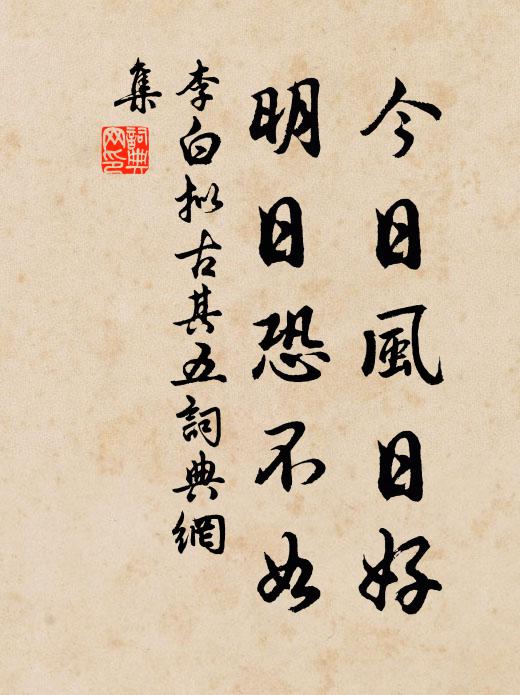 今日風日好
明日恐不如
李白拟古其五詞典網
集
詞典
网印